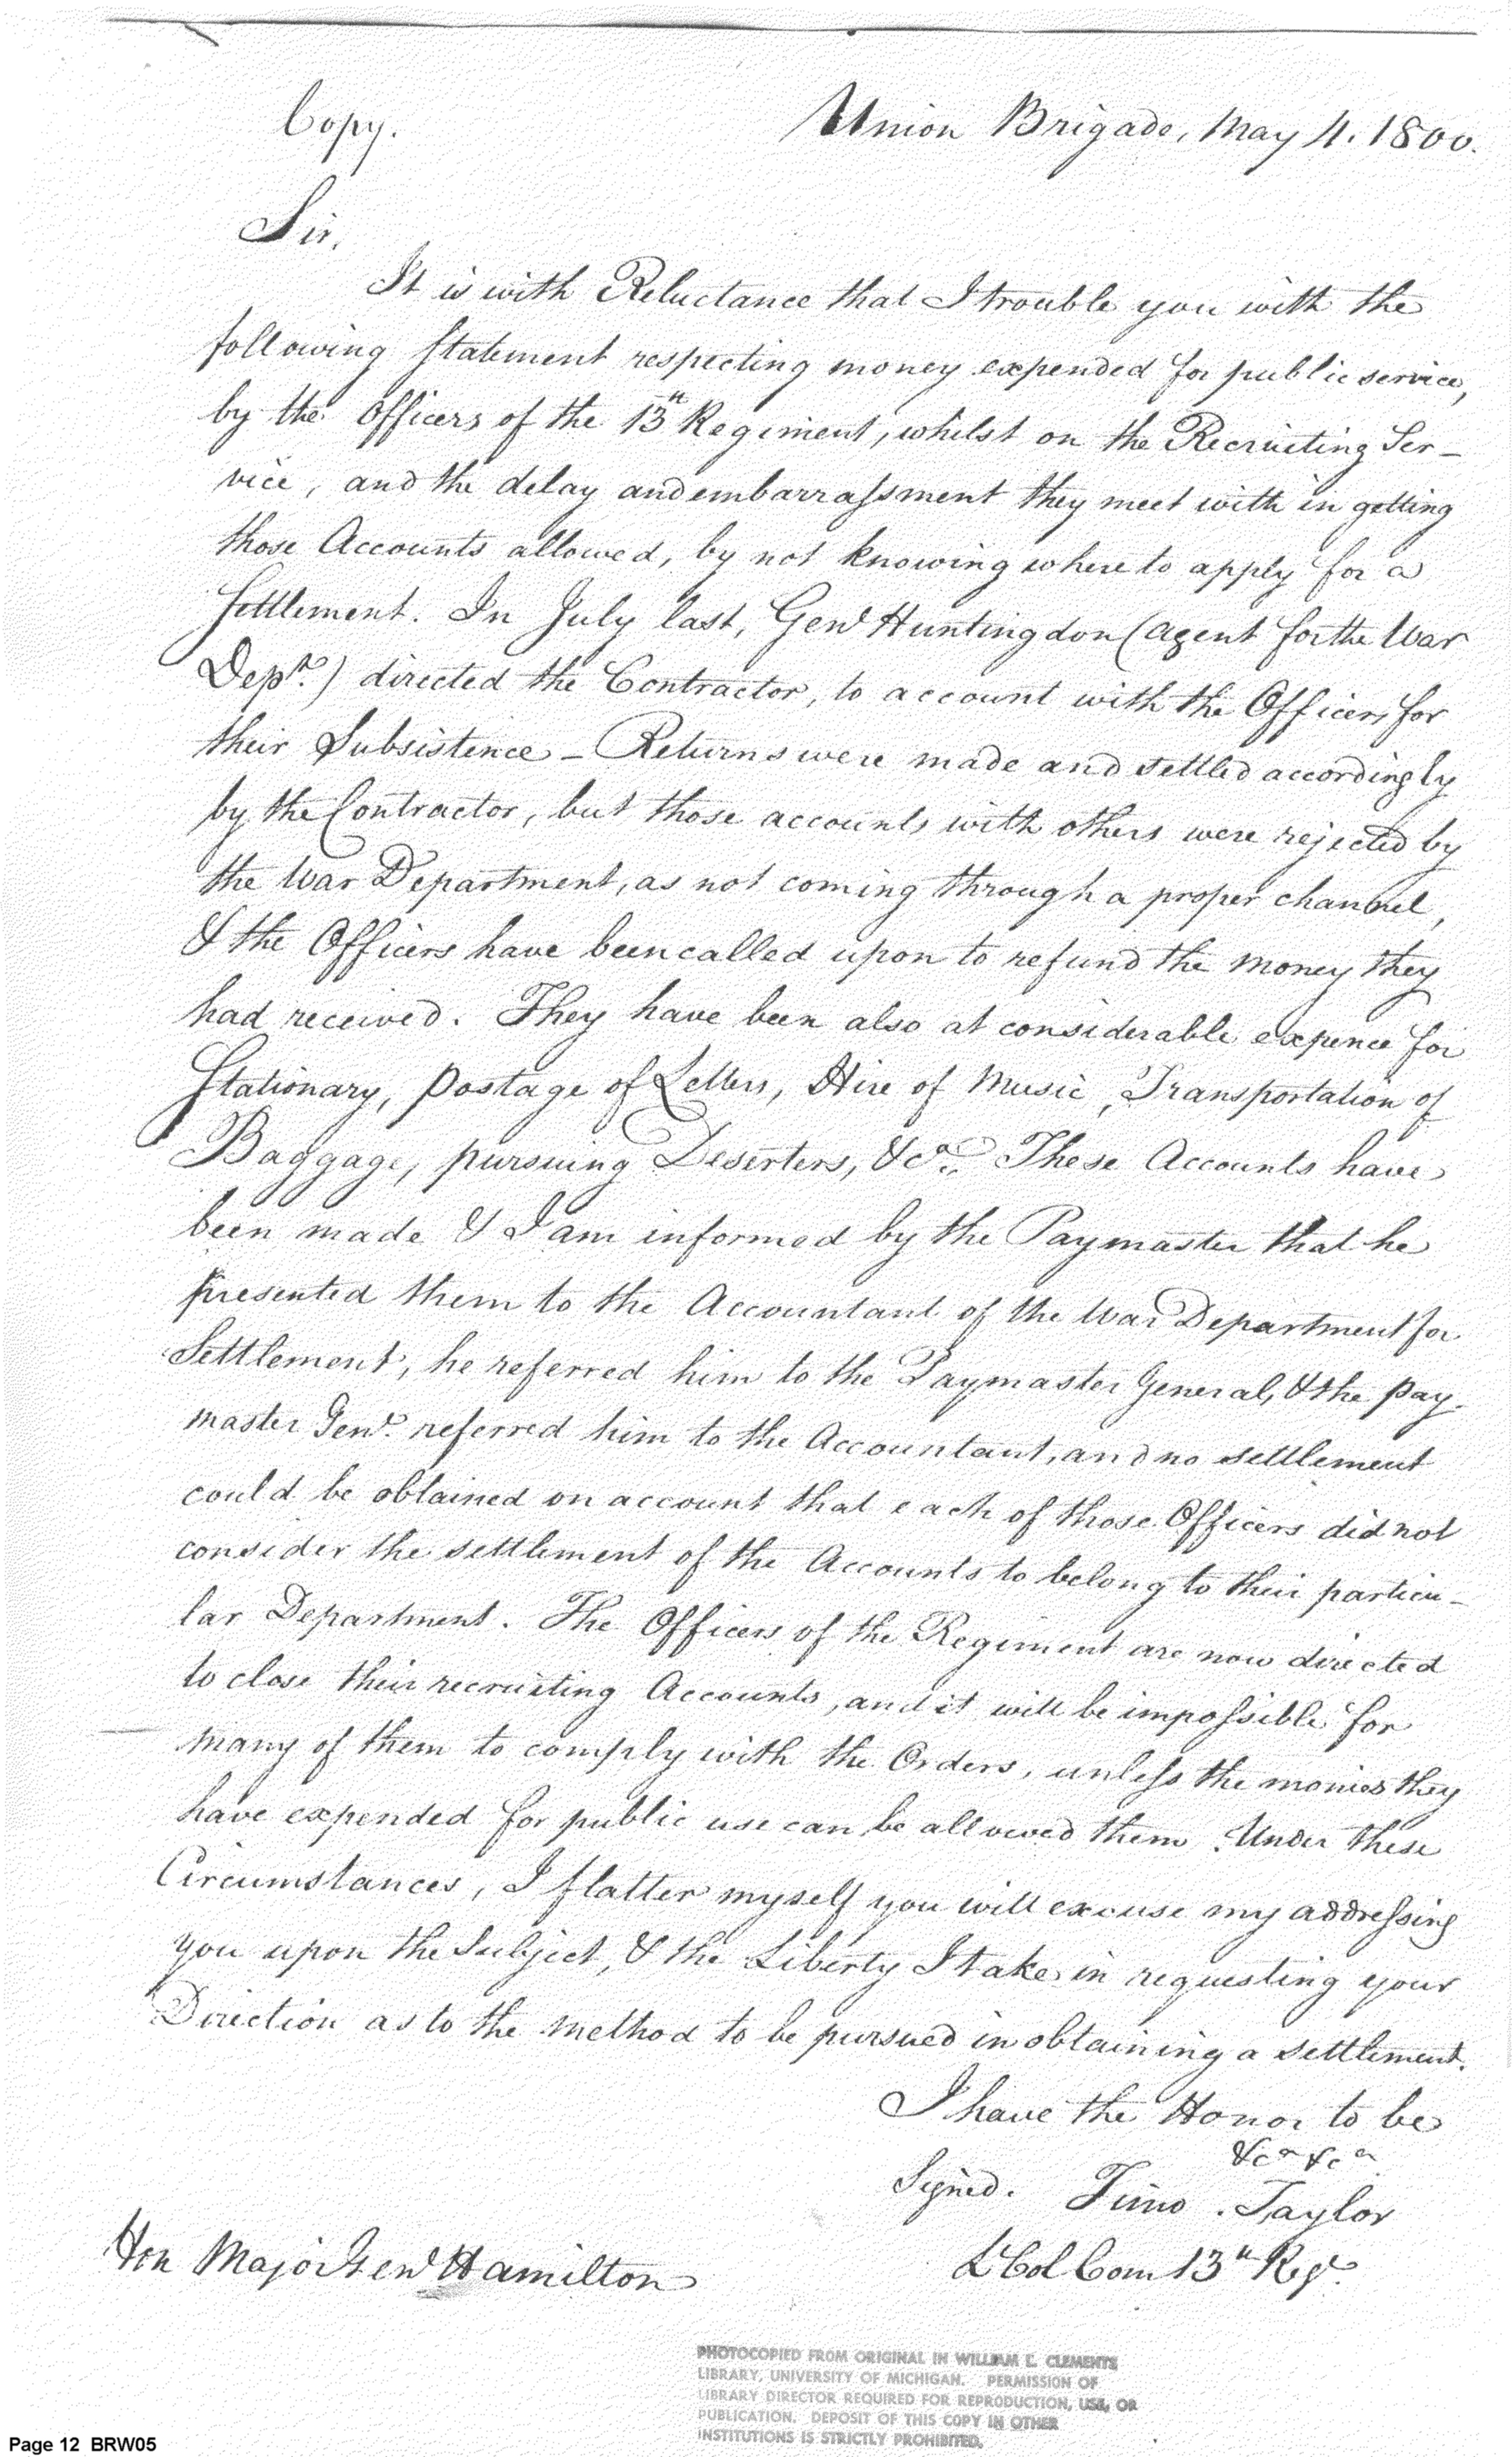 Copy.
Union Brigade, May 4. 1800.
Sir,
It is with Reluctance that I trouble you with the
following Statement respecting money expended for public service,
by the Officers of the 13th Regiment, whilst on the Recruiting Ser-
vice, and the delay and embarrassment they meet with in getting
those Accounts allowed, by not knowing where to apply for a
Settlement. In July last, Genl Huntingdon (agent for the War
Dept.) directed the Contractor, to account with the Officers for
their Subsistence - Returns were made and settled accordingly
by the Contractor, but those accounts with others were rejected by
the War Department, as not coming through a proper channel,
& the Officers have been called upon to refund the money they
had received. They have been also at considerable expence for
Stationary, postage of Letters, Hire of Music, Transportation of
Baggage, pursuing Deserters, &ca. These Accounts have
been made & I am informed by the Paymaster that he
presented them to the Accountant of the War Department for
Settlement, he referred him to the Paymaster General, & the Pay-
master Genl. referred him to the Accountant, and no settlement
could be obtained on account that each of those Officers did not
consider the settlement of the Accounts to belong to their particu-
lar Department. The Officers of the Regiment are now directed
to close their recruiting Accounts, and it will be impossible for
many of them to comply with the Orders, unless the monies they
have expended for public use can be allowed them. Under these
Circumstances, I flatter myself you will excuse my addressing
you upon the Subject, & the Liberty I take in requesting your
Direction as to the method to be pursued in obtaining a settlement.
I have the Honor to be
&ca &ca
Signed. Timo. Taylor
Lt Col Com 13th Regt.
Hon Major Genl Hamilton
PHOTOCOPIED FROM ORIGINAL IN WILLIAM L. CLEMENTS
LIBRARY, UNIVERSITY OF MICHIGAN. PERMISSION OF
LIBRARY DIRECTOR REQUIRED FOR REPRODUCTION, USE, OR
PUBLICATION. DEPOSIT OF THIS COPY IN OTHER
INSTITUTIONS IS STRICTLY PROHIBITED.
Page 12 BRW05